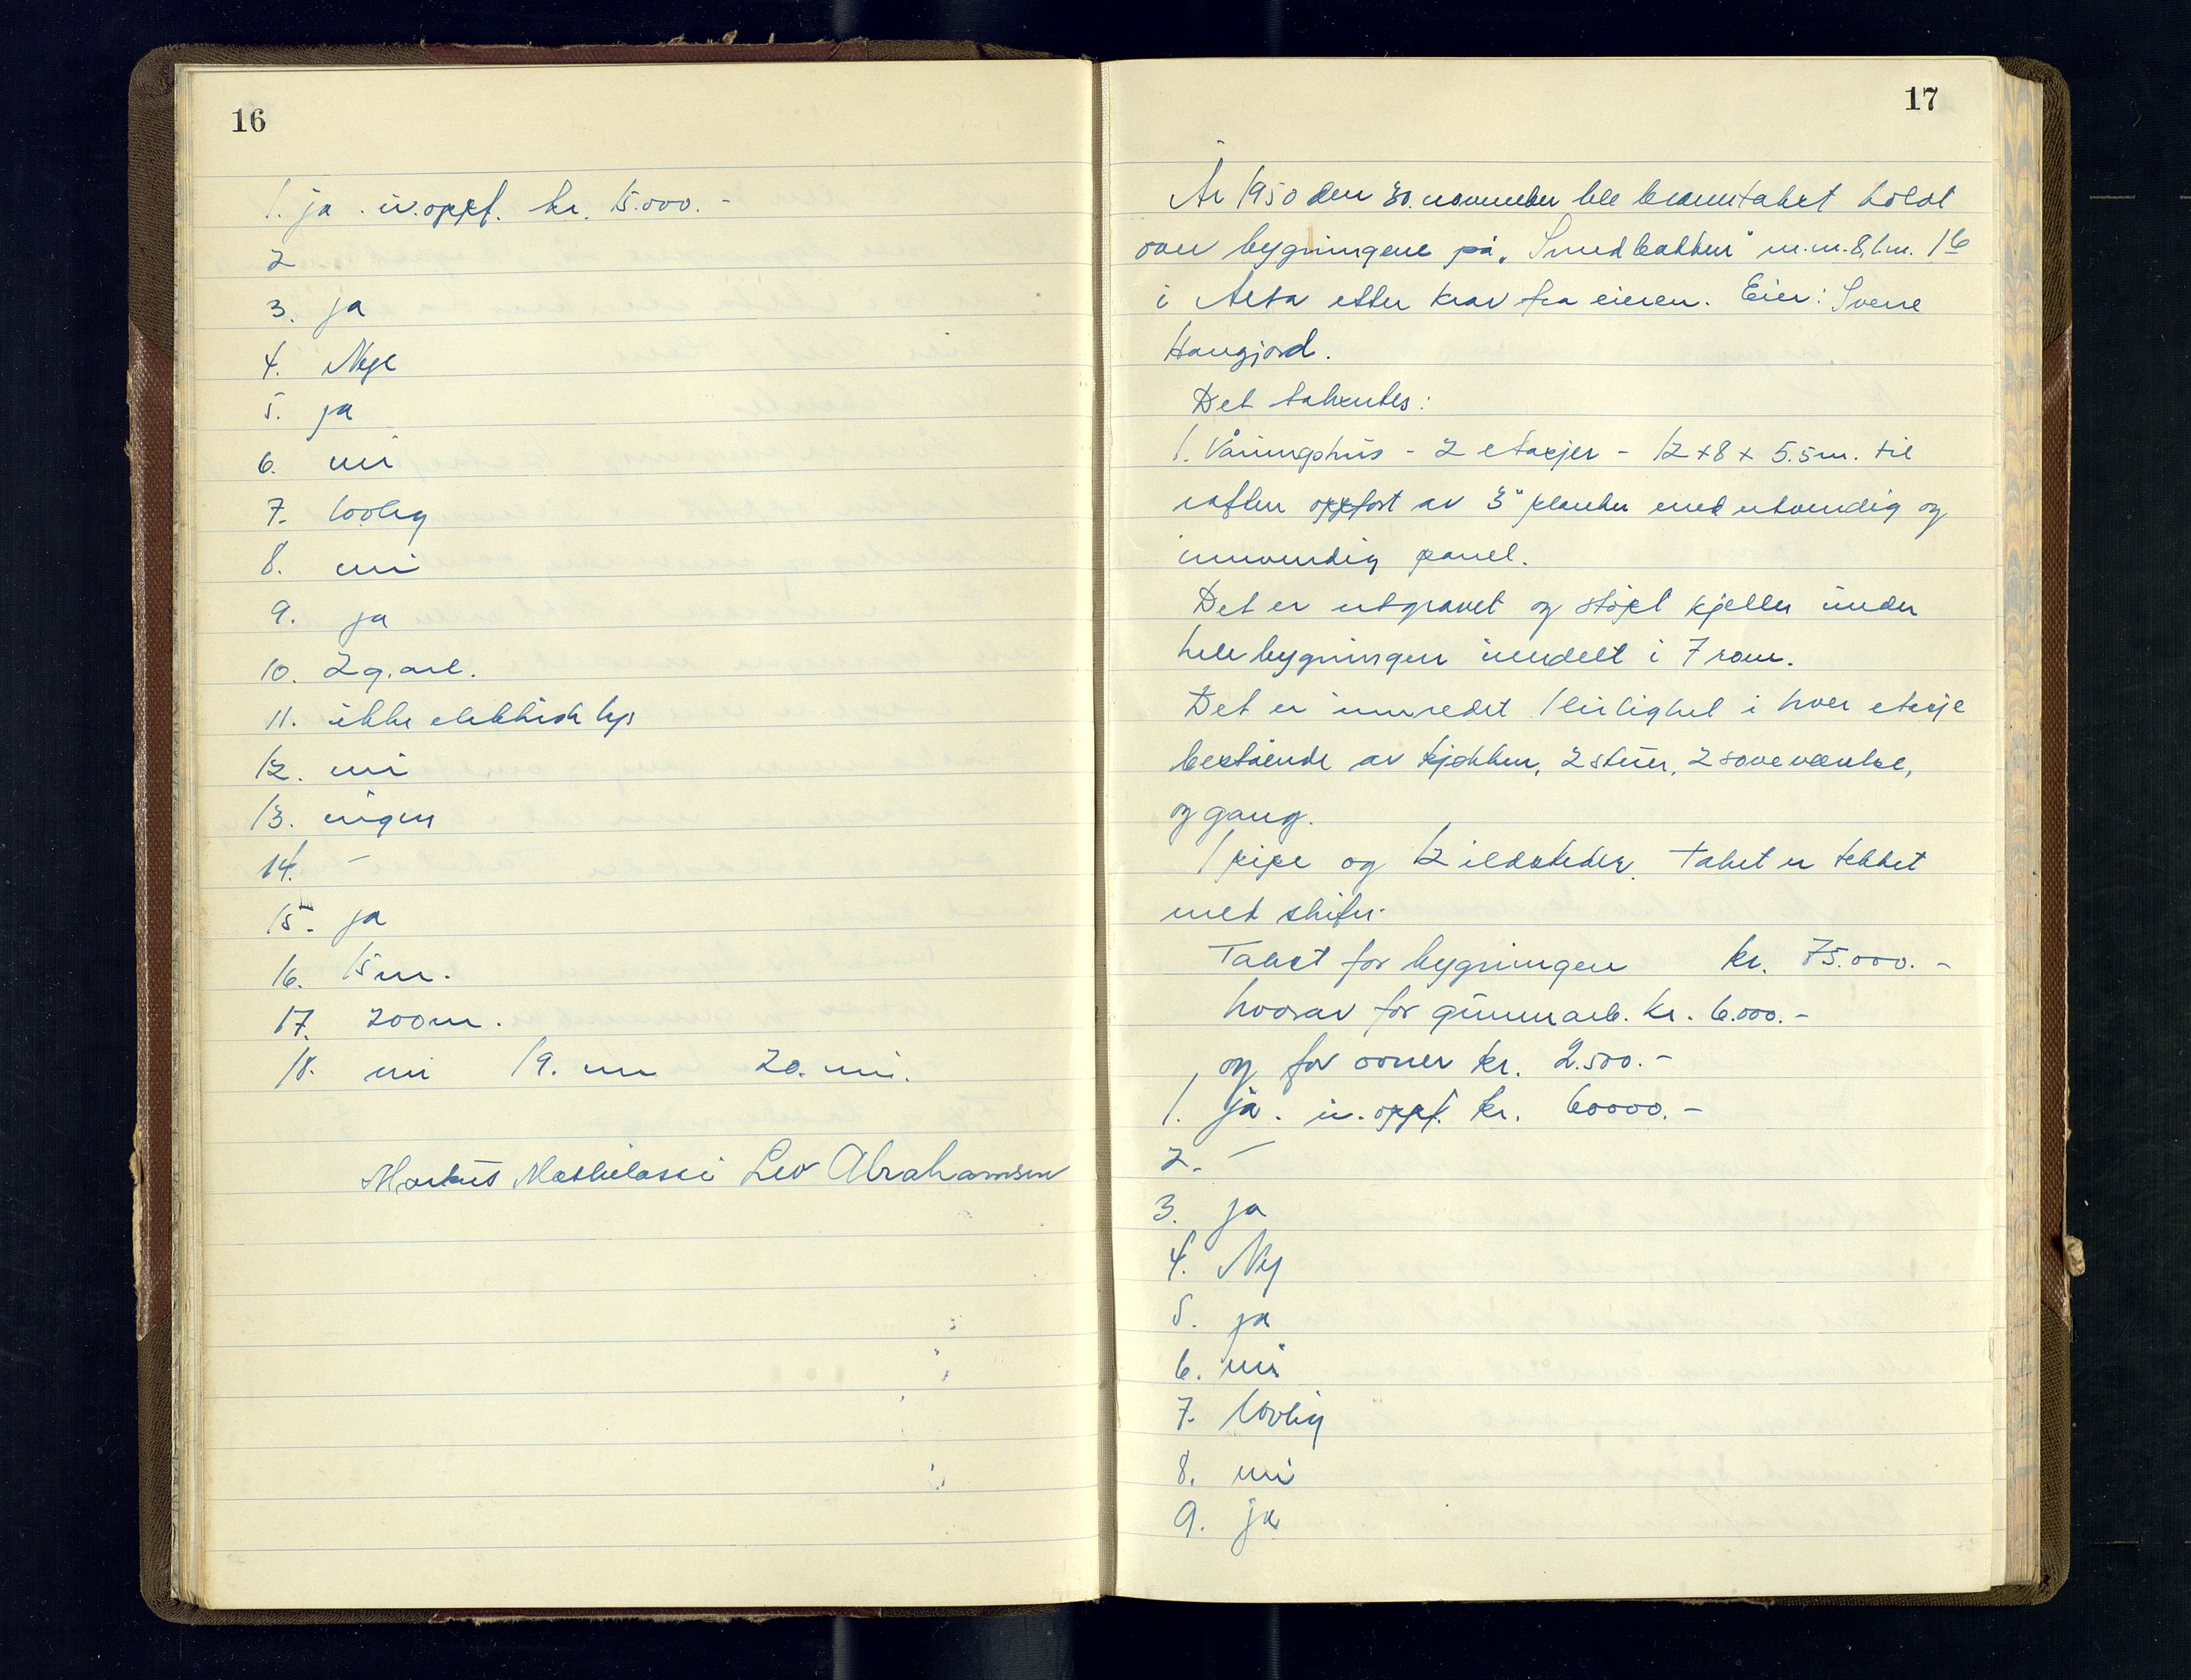 16
1. ja . iv.oppf. kr. 15.000.-
2
3. ja
4. Nye
5. ja
6. nei
7. lovlig
8. nei
9. ja
10. 2 g. årl.
11. ikke elektrisk lys
12. nei
13. ingen
14. -
15. ja
16. 15 m.
17. 200 m.
18. nei 19. nei 20. nei.
Markus Leo Abrahamsen
17
År 1950 den 30. november ble branntakst holdt
over bygningene på "Smedbakken" m.m. 8, l.nr. 16
i Alta etter krav fra eieren. Eier: Sverre
Haugjord.
Det takseres:
1. Våningshus - 2 etasjer - 12 x 8 x 5.5 m. til
raften oppført av 3" planker med utvendig og
innvendig panel.
Det er utgravet og støpt kjeller under
hele bygningen inndelt i 7 rom.
Det er innredet 1 leilighet i hver etasje
bestående av kjøkken, 2 stuer, 2 soveværelse,
og gang.
1 pipe og 12 ildsteder. Taket er tekket
med skifer.
Takst for bygningen kr. 75.000.-
hvorav for grunnarb. kr. 6.000.-
og for ovner kr. 2.500.-
1. ja. iv. oppf. kr. 60000.-
2. -
3. ja
4. Ny
5. ja
6. nei
7. lovlig
8. nei
9. ja